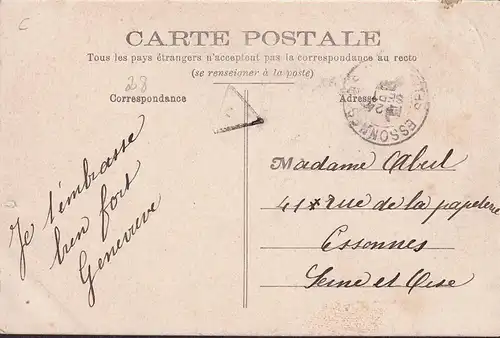 C
CARTE POSTALE
Tous les pays étrangers n'acceptent pas la correspondance au recto
(se renseigner à la poste)
28
Correspondance
Adresse
ESSONNES
Je t'embrasse
bien fort
Geneviève
Madame Abel
41 * rue de la papeterie
Essonnes
Seine et Oise